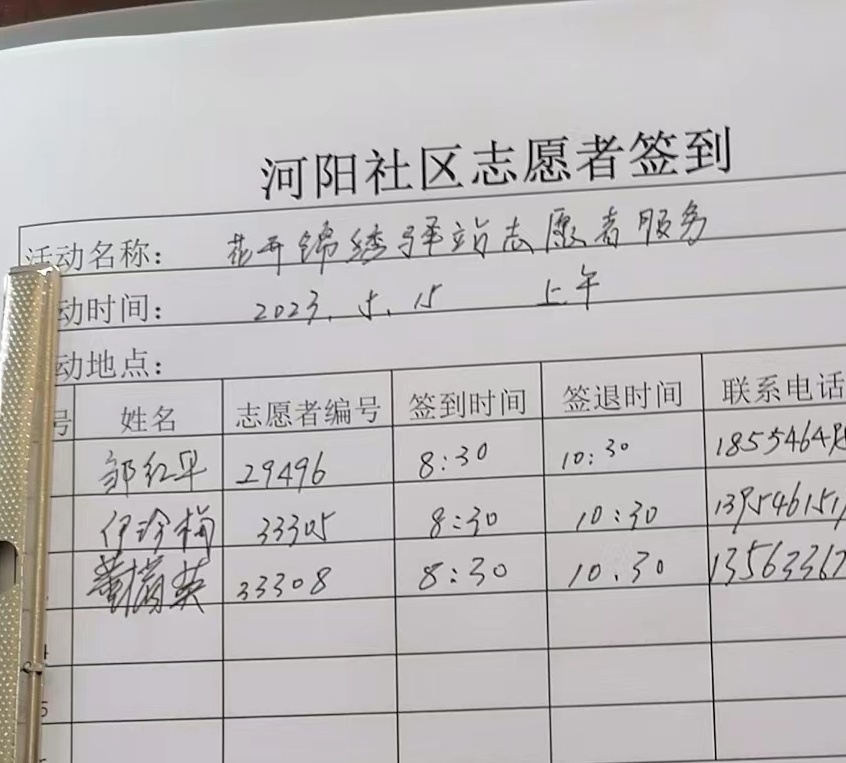 河阳社区志愿者签到
活动名称： 花开锦绣驿站志愿者服务
动时间： 2023.5.15 上午
动地点：
号 姓名 志愿者编号 签到时间 签退时间 联系电话
邹红早 29496 8:30 10:30 18554648
伊珍梅 33305 8:30 10:30 139546151
英 33308 8:30 10.30 13563367
4
5